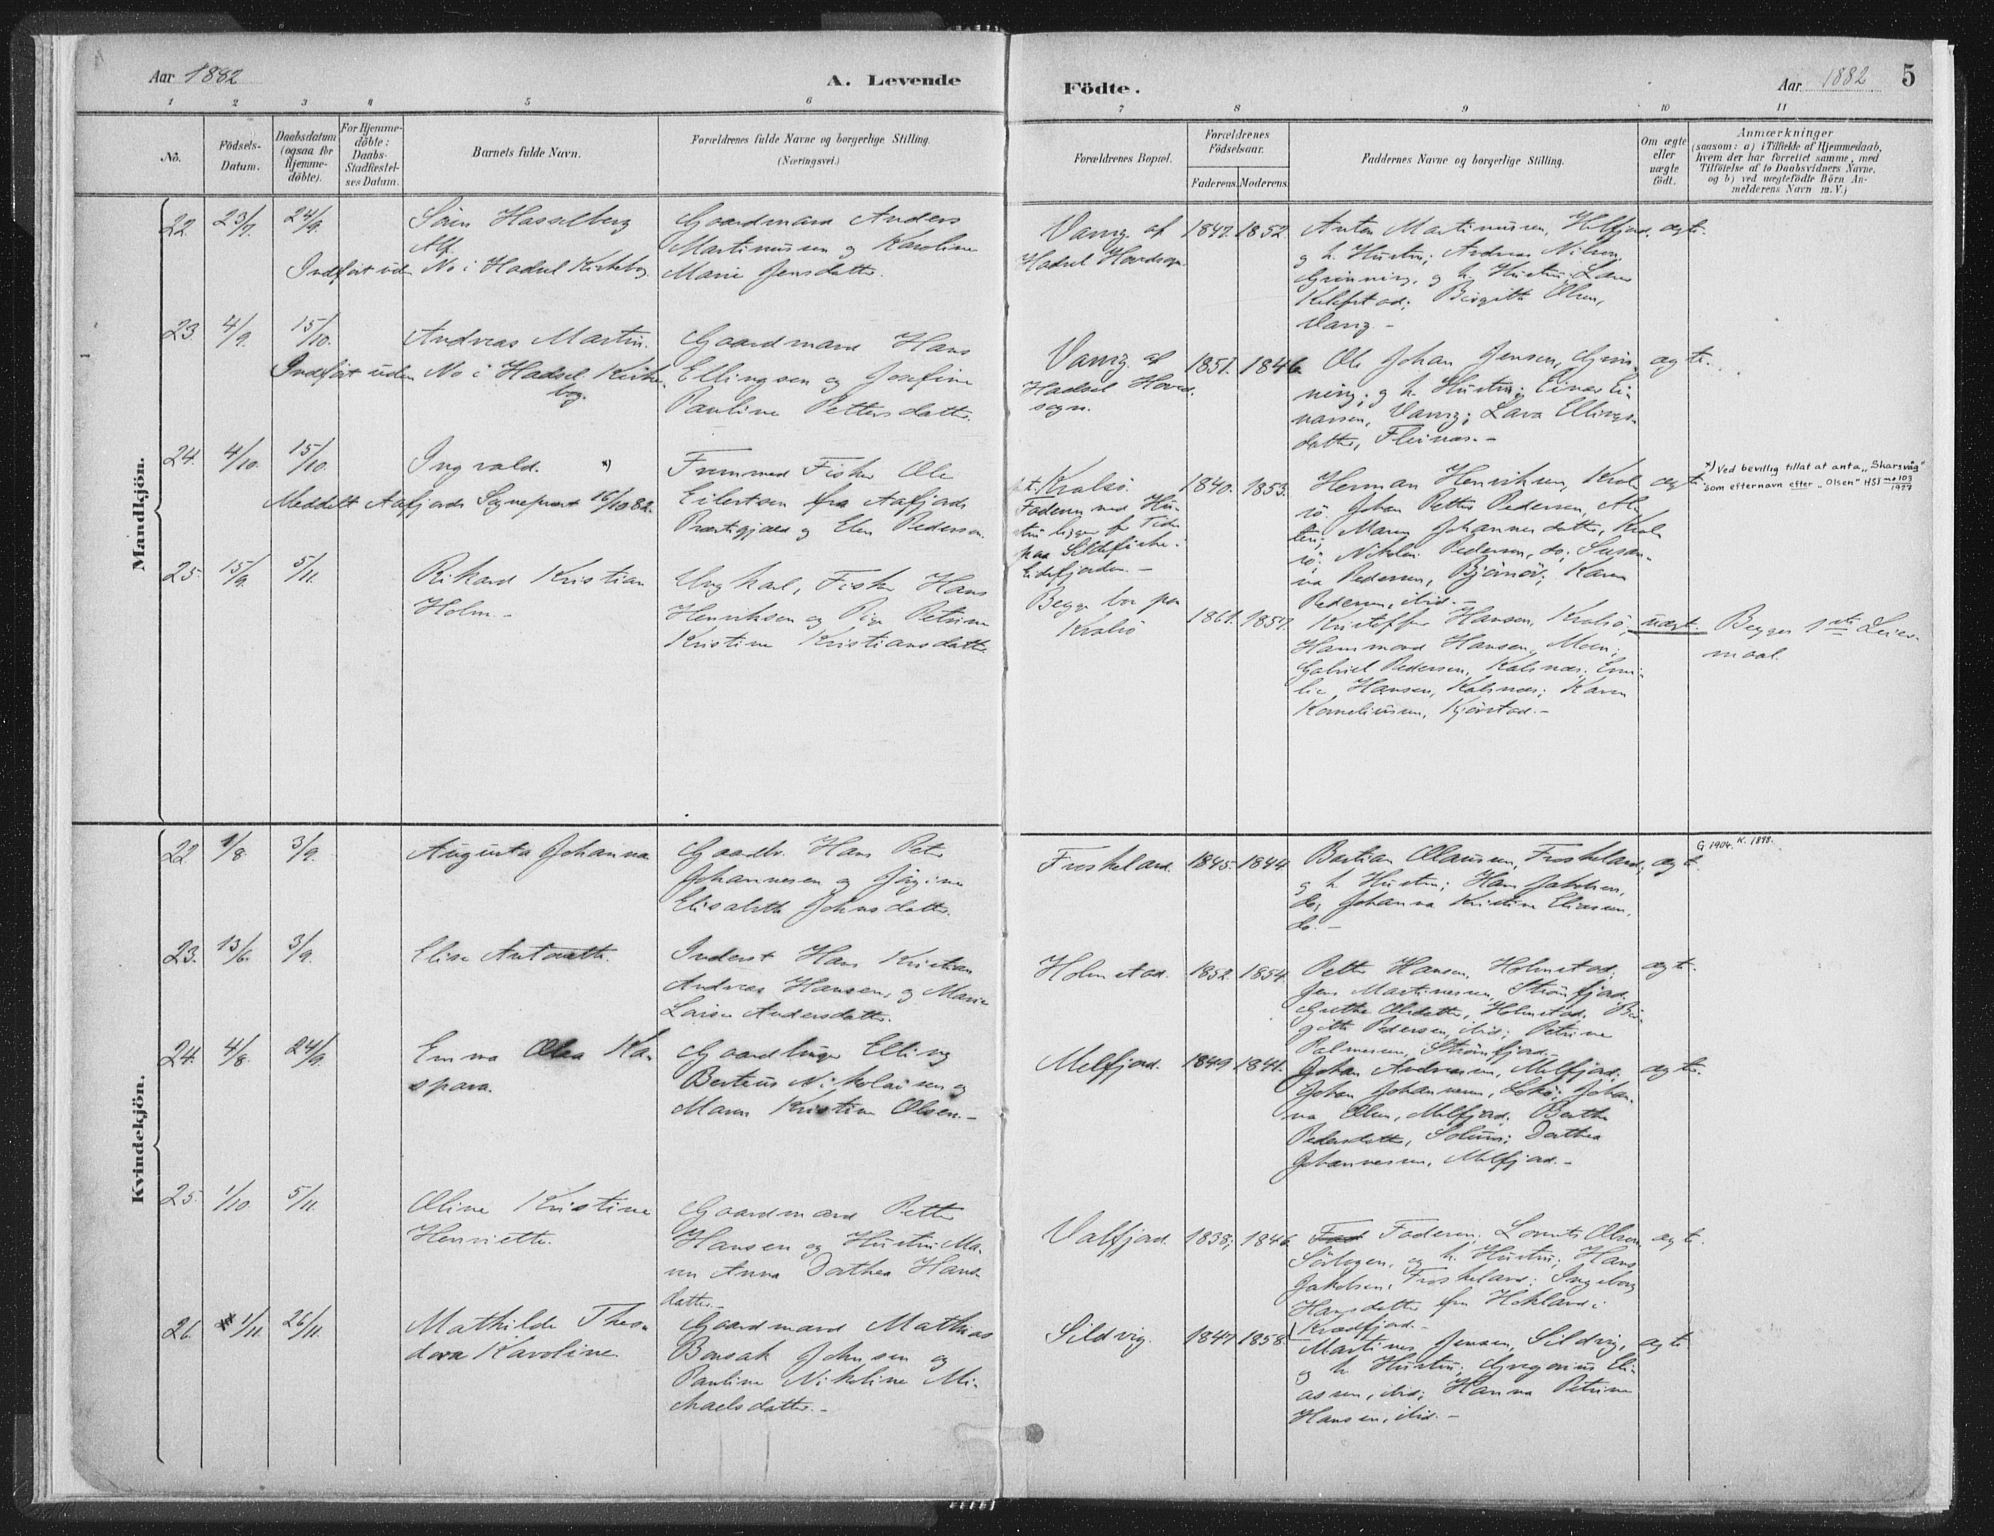 Aar 1882
A. Levende
Födte.
Aar 1882 5
1 2 3 4 5 6 7 8 9 10 11
No.
Födsels-
Datum.
Daabsdatum
(ogsaa for
Hjemme-
döbte).
For Hjemme-
döbte:
Daabs-
Stadfæstel-
ses Datum.
Barnets fulde Navn.
Forældrenes fulde Navne og borgerlige Stilling.
(Næringsvei.)
Forældrenes Bopæl.
Forældrenes
Födselsaar.
Faderens. Moderens.
Faddernes Navne og borgerlige Stilling.
Om ægte
eller
uægte
födt.
Anmærkninger
(saasom: a) i Tilfælde af Hjemmedaab,
hvem der har forrettet samme, med
Tilföielse af to Daabsvidners Navne,
og b) ved uægtefödte Börn An-
melderens Navn m. V.)
Mandkjön.
22. 23/7. 24/9.
Sören Hasselberg
Alf
Indfört uden No i Hadsel Kirkebog
Gaardmand Anders
Martinussen og Karoline
Marie Jensdatter.
Vang af
Hadsel Hovedsogn
1847. 1852.
Anton Martinussen, Melfjord,
g h. Hustru; Andreas Nilsen,
Grinning, g h. Hustru; Lars
Birgitte Olsen,
Vang. -
ægte.
23. 4/9. 15/10.
Andreas Martin.
Indfört uden No i Hadsel Kirke-
bog.
Gaardmand Hans
Ellingsen og Josefine
Pauline Pettersdatter.
Vang af
Hadsel Hoved-
sogn.
1851. 1846.
Ole Johan Jensen, Grin-
ning, g h. Hustru; Einar Ei-
narsen, Vang; Lava Ellings-
datter, Fleines. -
ægte.
24. 4/10. 15/10.
Ingvald. *)
Meddelt Aafjords Sognepræst 16/10 82.
Fremmed Fisker Ole
Eilertsen fra Aafjords
Præstegjæld og Elen Pedersen.
p.t. Kralsö.
Faderen med Hu-
stru ligger for Tiden
paa Sildefiske i
Eidsfjorden. -
1840. 1853.
Herman Henriksen, Kral-
sö, Johan Petter Pedersen,
Maren Johannesdatter, Kral-
sö; Nikolai Pedersen, do; Susan-
na Pedersen, Björnör; Karen
Pedersen, ibid. -
ægte.
*) Ved bevillig tillat at anta „Skarsvåg"
som efternavn efter „Olsen" HSJ no 103/1927
25. 15/9. 5/11.
Rikard Kristian
Holm. -
Ungkarl, Fisker Hans
Henriksen og Pige Petrine
Kristine Kristiansdatter
Begge bor paa
Kralsö
1861. 1857.
Kristoffer Hansen, Kralsö,
Hammond Hansen, Moen;
Gabriel Pedersen, Kalsnæs; Emi-
lie Hansen, Kalsnæs; Karen
Korneliussen, Kjörstad. -
uægt.
Begges 1ste Leier-
maal.
Kvindekjön.
22 1/8. 3/9.
Augusta Johanna
Gaardbr. Hans Peter
Johannesen og Jörgine
Elisabeth Johnsdatter.
Froskeland.
1845. 1844.
Bastian Olausen, Froskeland,
g h. Hustru; Hans Jakobsen,
do; Johanna Kristine Eliassen,
do. -
ægte.
G 1904. K. 1898.
23. 13/6. 3/9.
Elise Antonette.
Inderst Hans Kristian
Andreas Hansen, og Marie
Lovise Andersdatter.
Holmstad.
1852. 1854.
Petter Hansen, Holmstad;
Jens Martinussen, Strömfjord,
Grethe Olsdatter, Holmstad; Bir-
gitte Pedersen, ibid; Petrine
Palmesen, Strömfjord. -
ægte.
24. 4/8. 24/9.
Emma Olea Ka-
spara.
Gaardbruger Elling
Berteus Nikolaisen og
Maren Kristine Olsen. -
Melfjord.
1849 1841.
Johan Andreassen, Melfjord,
Johan Johannesen, Johan-
na Olsen, Melfjord; Berthe
Pedersdatter, Dorthea
Johannesen, Melfjord. -
ægte.
25. 1/10. 5/11.
Oline Kristine
Henriette.
Gaardmand Petter
Hansen og Hustru Ma-
ren Anna Dorthea Hans-
datter. -
Valfjord.
1838, 1846.
Faderen; Lorents Olsen
og h. Hustru; Hans
Jakobsen, Froskeland; Ingeborg
Hansdatter fra Hokland i
Kvædfjord. -
ægte.
26. 1/11. 26/11.
Mathilde Theo-
dora Karoline.
Gaardmand Mathias
Bonsak Johnsen og
Pauline Nikoline Mi-
chaelsdatter. -
Sildvig.
1847 1858
Martines Jensen, Sildvig,
g h. Hustru; Gregorius Eli-
assen, ibid; Hanna Petrine
Hansen, ibid. -
ægte